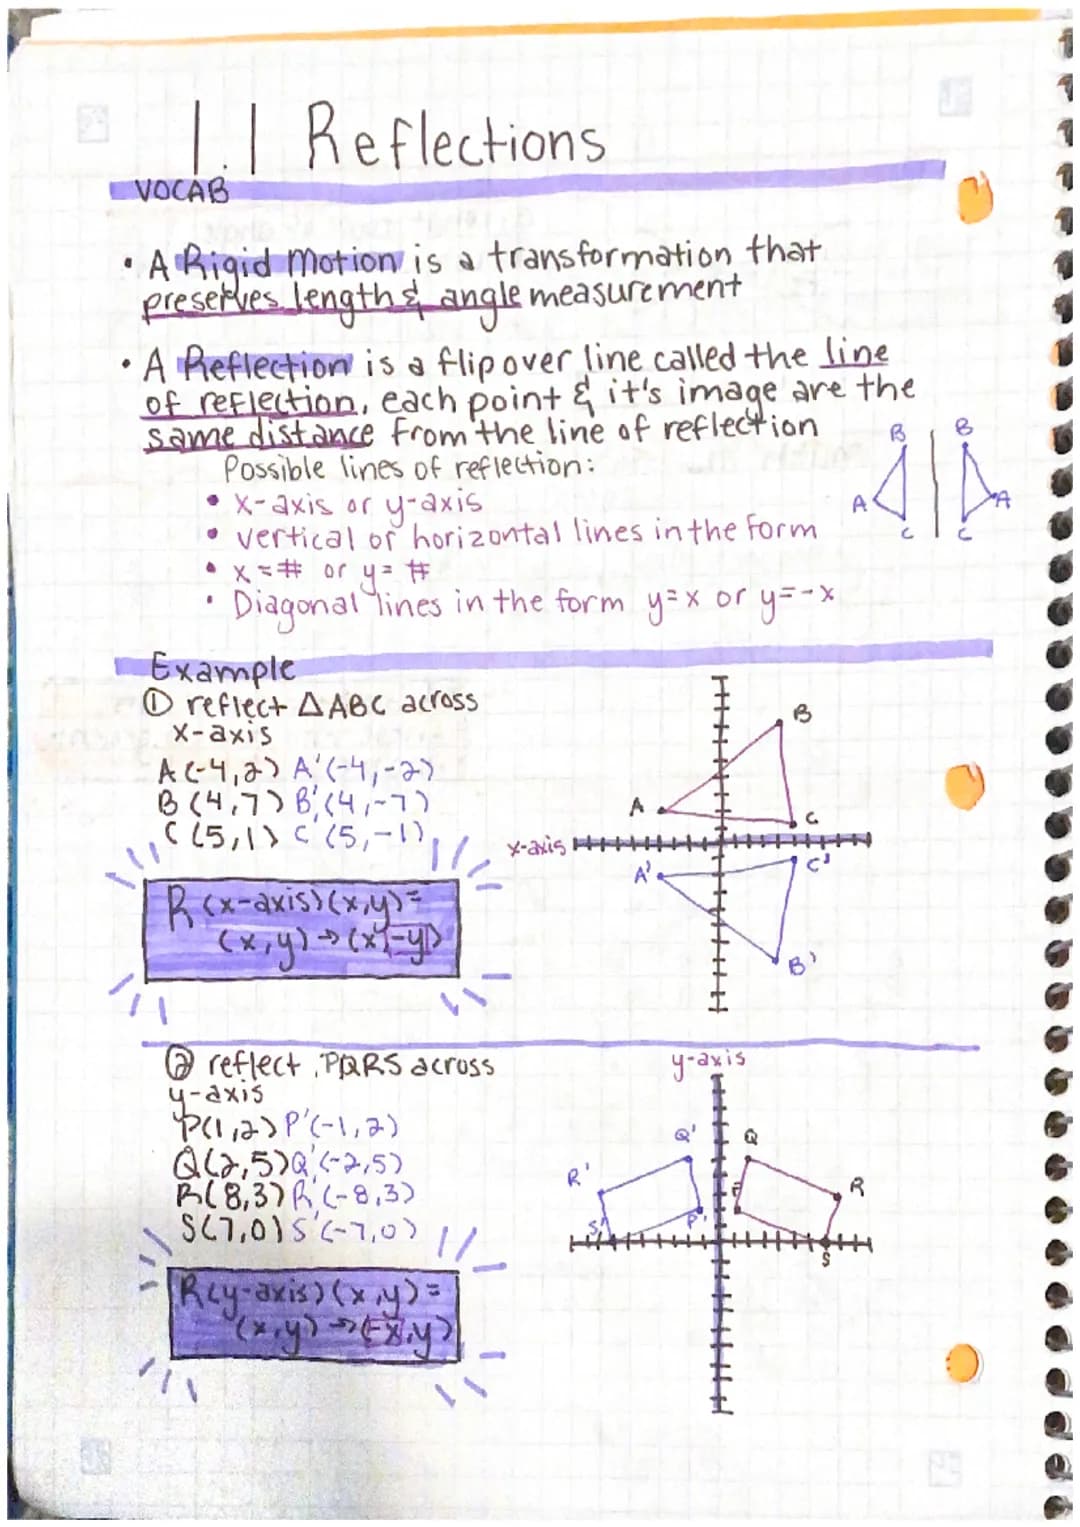 1.1 Reflections
VOCAB
• A Rigid Motion is a transformation that
preserves length & angle measurement
• A Reflection is a flip over line called the line
of reflection, each point & it's image are the
same distance from the line of reflection
B B
Possible lines of reflection:
• x-axis or y-axis
A A
• vertical or horizontal lines in the form
C C
• x = # or y = #
• Diagonal lines in the form y=x or y=-x
Example
① reflect △ABC across
x-axis
A (-4,2) A'(-4,-2)
B (4,7) B'(4,-7)
C (5,1) C'(5,-1)
R (x-axis)(x,y)=
(x,y)→(x,-y)
B
A
C
x-axis
A'
C'
B'
② reflect PQRS across
y-axis
P(1,2) P'(-1,2)
Q(2,5) Q'(-2,5)
R(8,3) R'(-8,3)
S(7,0) S'(-7,0)
R(y-axis)(x,y)=
(x,y)→(-x,y)
y-axis
Q' Q
R' R
P' P
S' S